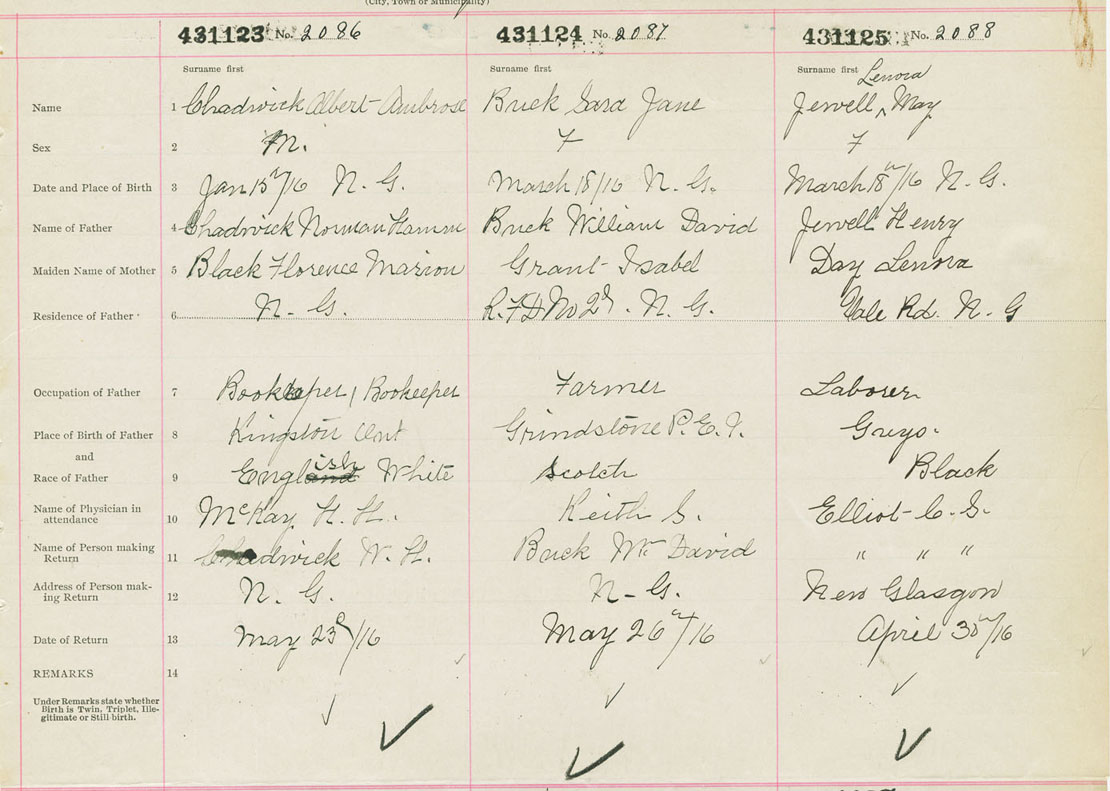 (City, Town or Municipality)
431123 No. 2086 431124 No. 2087 431125 No. 2088
Surname first Surname first Surname first Lenora
Name 1 Chadwick Albert Ambrose Buck Sara Jane Jewell ^ May
Sex 2 M. F F
Date and Place of Birth 3 Jan 15th/16 N. G. March 18/16 N. G. March 18th/16 N. G.
Name of Father 4 Chadwick Norman Hamm Buck William David Jewell Henry
Maiden Name of Mother 5 Black Florence Marion Grant Isabel Day Lenora
Residence of Father 6 N. G. R.F.D No 2 . N. G. Vale Rd. N. G
Occupation of Father 7 Bookeeper / Bookeeper Farmer Laborer
Place of Birth of Father 8 Kingston Ont Grindstone P.E.I. Guys.
and
Race of Father 9 English White Scotch Black
Name of Physician in
attendance 10 McKay H. H. Keith S. Elliot C. S.
Name of Person making
Return 11 Chadwick N. H. Buck Wm David " " "
Address of Person mak-
ing Return 12 N. G. N. G. New Glasgow
Date of Return 13 May 23d/16 May 26th/16 April 30th/16
REMARKS 14
Under Remarks state whether
Birth is Twin, Triplet, Ille-
gitimate or Still-birth.